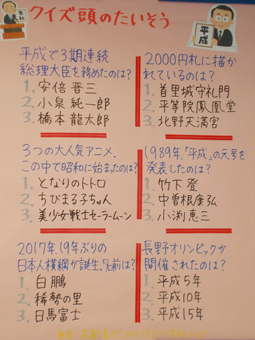 クイズ頭のたいそう
平成
平成で3期連続
総理大臣を務めたのは?
1. 安倍晋三
2. 小泉純一郎
3. 橋本龍太郎
2000円札に描か
れているのは?
1. 首里城守礼門
2. 平等院鳳凰堂
3. 北野天満宮
3つの大人気アニメ、
この中で昭和に始まったのは?
1. となりのトトロ
2. ちびまる子ちゃん
3. 美少女戦士セーラームーン
1989年、「平成」の元号を
発表したのは?
1. 竹下登
2. 中曽根康弘
3. 小渕恵三
2017年、19年ぶりの
日本人横綱が誕生。名前は?
1. 白鵬
2. 稀勢の里
3. 日馬富士
長野オリンピックが
開催されたのは?
1. 平成5年
2. 平成10年
3. 平成15年